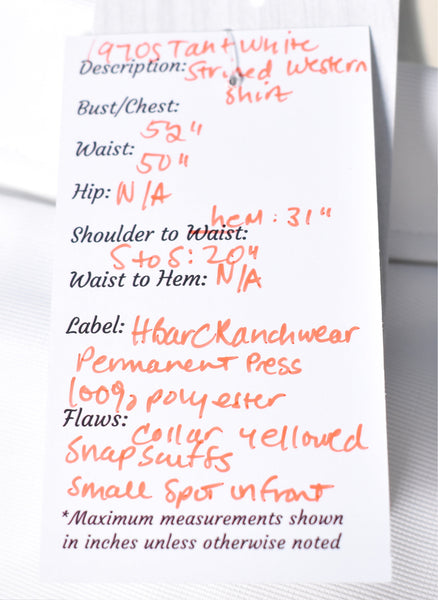 1970s Tan + White
Description: Striped Western
Shirt
Bust/Chest:
52"
Waist:
50"
Hip: N/A
hem: 31"
Shoulder to Waist:
S to S: 20"
Waist to Hem: N/A
Label: HbarCRanchwear
Permanent Press
100% polyester
Flaws:
collar yellowed
Snap scuffs
Small spot in front
*Maximum measurements shown
in inches unless otherwise noted